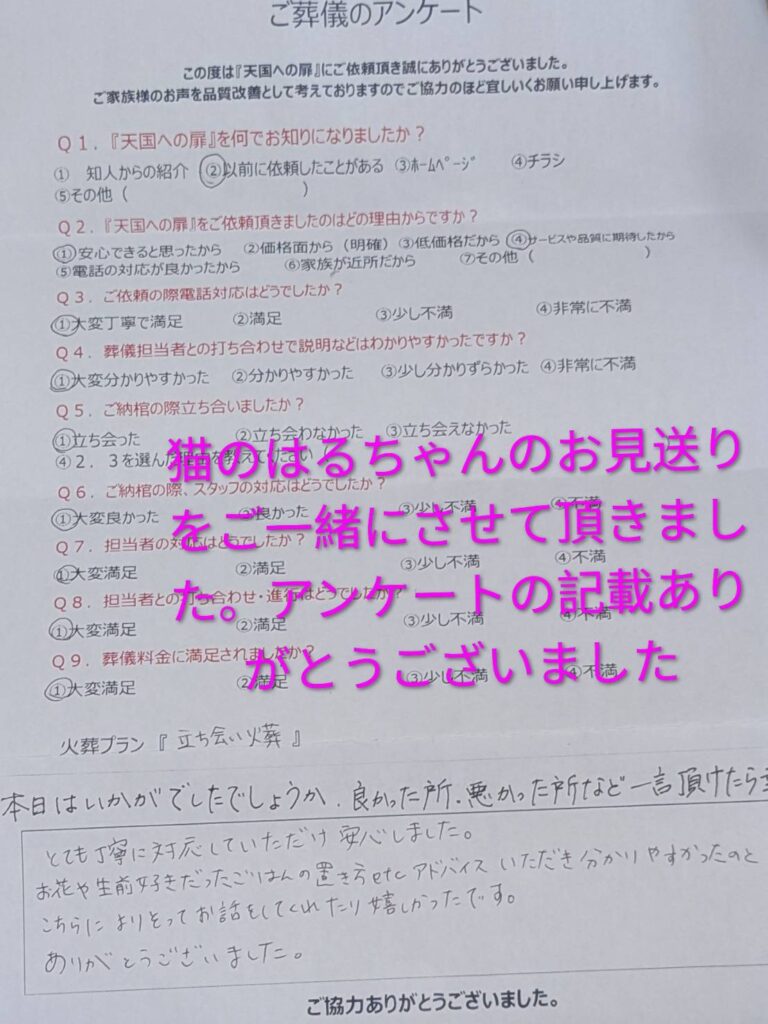 ご葬儀のアンケート
この度は『天国への扉』にご依頼頂き誠にありがとうございました。
ご家族様のお声を品質改善として考えておりますのでご協力のほど宜しいくお願い申し上げます。
Q1.『天国への扉』を何でお知りになりましたか？
① 知人からの紹介 ②以前に依頼したことがある ③ﾎｰﾑﾍﾟｰｼﾞ ④チラシ
⑤その他（ ）
Q2.『天国への扉』をご依頼頂きましたのはどの理由からですか？
①安心できると思ったから ②価格面から（明確）③低価格だから ④サービスや品質に期待したから
⑤電話の対応が良かったから ⑥家族が近所だから ⑦その他（ ）
Q3．ご依頼の際電話対応はどうでしたか？
①大変丁寧で満足 ②満足 ③少し不満 ④非常に不満
Q4．葬儀担当者との打ち合わせで説明などはわかりやすかったですか？
①大変分かりやすかった ②分かりやすかった ③少し分かりずらかった ④非常に不満
Q5．ご納棺の際立ち合いましたか？
①立ち会った ②立ち会わなかった ③立ち会えなかった
④２．３を選んだ理由を教えてください
Q6．ご納棺の際、スタッフの対応はどうでしたか？
①大変良かった ②良かった ③少し不満 ④不満
Q7．担当者の対応はどうでしたか？
①大変満足 ②満足 ③少し不満 ④不満
Q8．担当者との打ち合わせ・進行はどうでしたか？
①大変満足 ②満足 ③少し不満 ④不満
Q9．葬儀料金に満足されましたか？
①大変満足 ②満足 ③少し不満 ④不満
猫のはるちゃんのお見送り
をご一緒にさせて頂きまし
た。アンケートの記載あり
がとうございました
火葬プラン『 立ち会い火葬 』
本日はいかがでしたでしょうか．良かった所．悪かった所など一言頂けたら
とても丁寧に対応していただけ安心しました。
お花や生前好きだったごはんの置き方etcアドバイスいただき分かりやすかったのと
こちらによりそってお話をしてくれたり嬉しかったです。
ありがとうございました。
ご協力ありがとうございました。